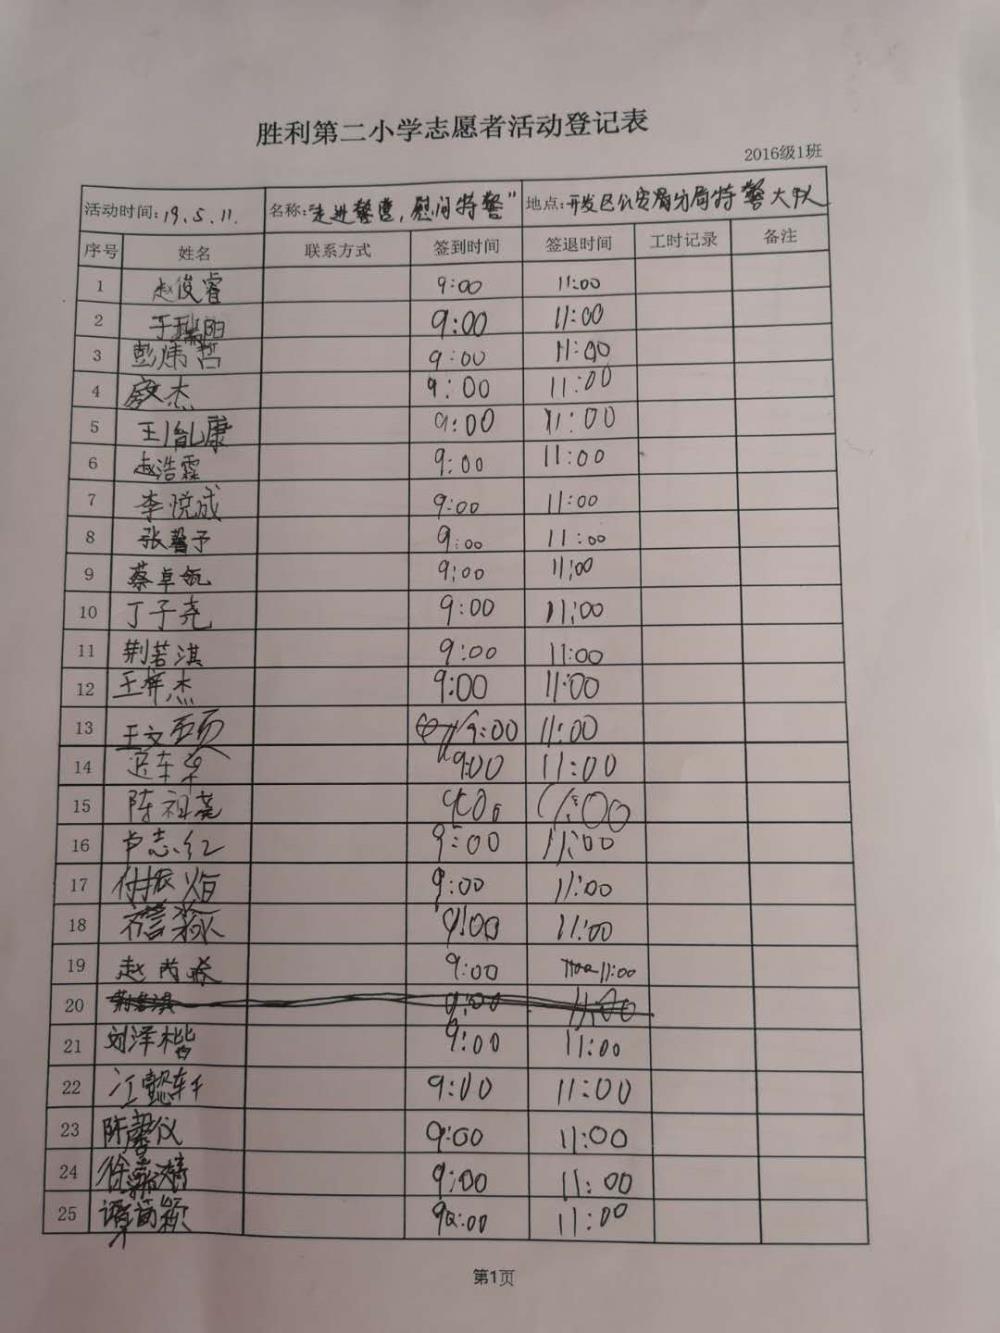 胜利第二小学志愿者活动登记表
2016级1班
活动时间:19.5.11. 名称:"走进警营,慰问特警" 地点:开发区公安局分局特警大队
序号 姓名 联系方式 签到时间 签退时间 工时记录 备注
1 赵俊睿 9:00 11:00
2 于瑞阳 9:00 11:00
3 彭炜哲 9:00 11:00
4 杰 9:00 11:00
5 王胤康 9:00 11:00
6 赵浩霖 9:00 11:00
7 李悦成 9:00 11:00
8 张馨予 9:00 11:00
9 蔡卓航 9:00 11:00
10 丁子尧 9:00 11:00
11 荆若淇 9:00 11:00
12 王梓杰 9:00 11:00
13 王文硕 9:00 11:00
14 9:00 11:00
15 陈祖尧 9:00 11:00
16 卢志红 9:00 11:00
17 付振焰 9:00 11:00
18 9:00 11:00
19 赵芮 9:00 11:00
20 荆若淇 9:00 11:00
21 刘泽楷 9:00 11:00
22 江懿轩 9:00 11:00
23 陈馨仪 9:00 11:00
24 徐 9:00 11:00
25 谭茼颖 9:00 11:00
第1页